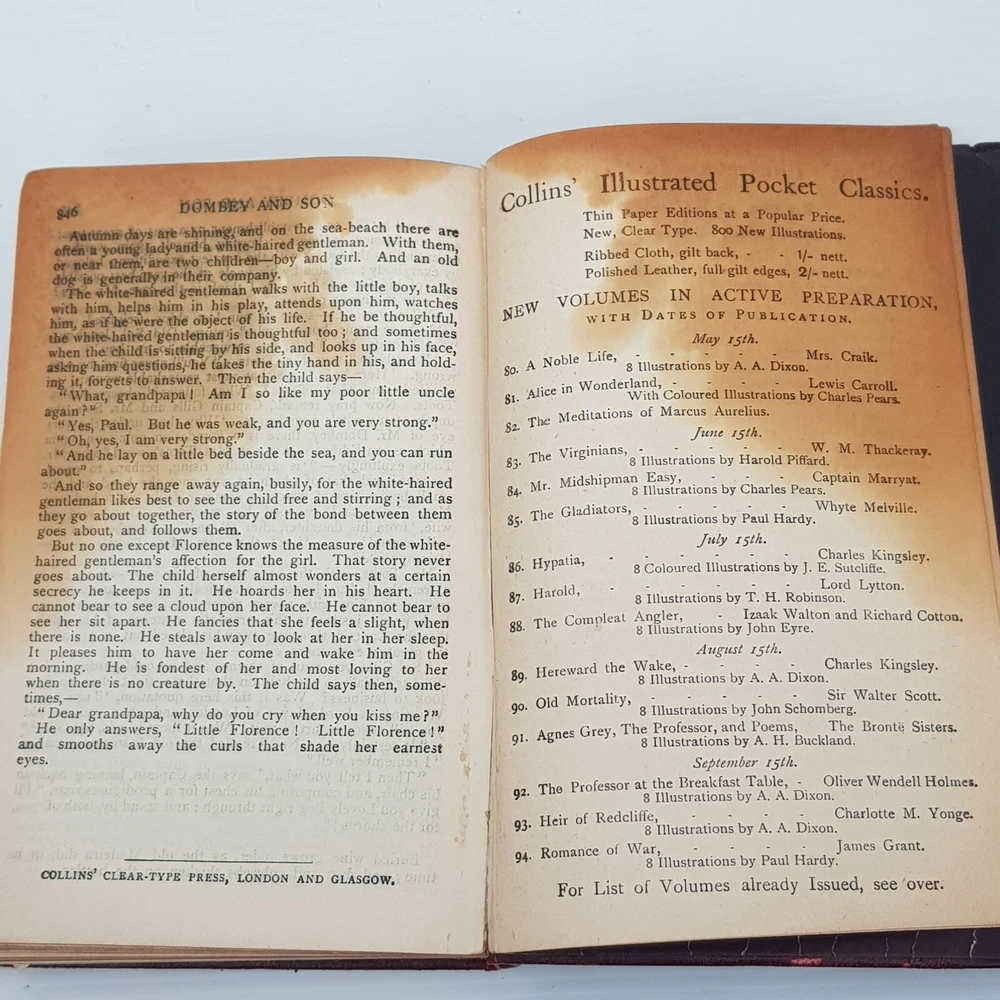 846
DOMBEY AND SON
Autumn days are shining, and on the sea-beach there are
often a young lady and a white-haired gentleman. With them,
or near them, are two children—boy and girl. And an old
dog is generally in their company.
The white-haired gentleman walks with the little boy, talks
with him, helps him in his play, attends upon him, watches
him, as if he were the object of his life. If he be thoughtful,
the white-haired gentleman is thoughtful too; and sometimes
when the child is sitting by his side, and looks up in his face,
asking him questions, he takes the tiny hand in his, and hold-
ing it, forgets to answer. Then the child says—
"What, grandpapa! Am I so like my poor little uncle
again?"
"Yes, Paul. But he was weak, and you are very strong."
"Oh, yes, I am very strong."
"And he lay on a little bed beside the sea, and you can run
about."
And so they range away again, busily, for the white-haired
gentleman likes best to see the child free and stirring; and as
they go about together, the story of the bond between them
goes about, and follows them.
But no one except Florence knows the measure of the white-
haired gentleman's affection for the girl. That story never
goes about. The child herself almost wonders at a certain
secrecy he keeps in it. He hoards her in his heart. He
cannot bear to see a cloud upon her face. He cannot bear to
see her sit apart. He fancies that she feels a slight, when
there is none. He steals away to look at her in her sleep.
It pleases him to have her come and wake him in the
morning. He is fondest of her and most loving to her
when there is no creature by. The child says then, some-
times,—
"Dear grandpapa, why do you cry when you kiss me?"
He only answers, "Little Florence! Little Florence!"
and smooths away the curls that shade her earnest
eyes.
COLLINS' CLEAR-TYPE PRESS, LONDON AND GLASGOW.
Collins' Illustrated Pocket Classics.
Thin Paper Editions at a Popular Price.
New, Clear Type. 800 New Illustrations.
Ribbed Cloth, gilt back, - - 1/- nett.
Polished Leather, full gilt edges, 2/- nett.
NEW VOLUMES IN ACTIVE PREPARATION,
WITH DATES OF PUBLICATION.
May 15th.
80. A Noble Life, - - - - - Mrs. Craik.
8 Illustrations by A. A. Dixon.
81. Alice in Wonderland, - - - - Lewis Carroll.
With Coloured Illustrations by Charles Pears.
82. The Meditations of Marcus Aurelius.
June 15th.
83. The Virginians, - - - - W. M. Thackeray.
8 Illustrations by Harold Piffard.
84. Mr. Midshipman Easy, - - - Captain Marryat.
8 Illustrations by Charles Pears.
85. The Gladiators, - - - - Whyte Melville.
8 Illustrations by Paul Hardy.
July 15th.
86. Hypatia, - - - - - - Charles Kingsley.
8 Coloured Illustrations by J. E. Sutcliffe.
87. Harold, - - - - - - Lord Lytton.
8 Illustrations by T. H. Robinson.
88. The Compleat Angler, - Izaak Walton and Richard Cotton.
8 Illustrations by John Eyre.
August 15th.
89. Hereward the Wake, - - - - Charles Kingsley.
8 Illustrations by A. A. Dixon.
90. Old Mortality, - - - - - Sir Walter Scott.
8 Illustrations by John Schomberg.
91. Agnes Grey, The Professor, and Poems, The Brontë Sisters.
8 Illustrations by A. H. Buckland.
September 15th.
92. The Professor at the Breakfast Table, - Oliver Wendell Holmes.
8 Illustrations by A. A. Dixon.
93. Heir of Redcliffe, - - - - Charlotte M. Yonge.
8 Illustrations by A. A. Dixon.
94. Romance of War, - - - - James Grant.
8 Illustrations by Paul Hardy.
For List of Volumes already Issued, see over.